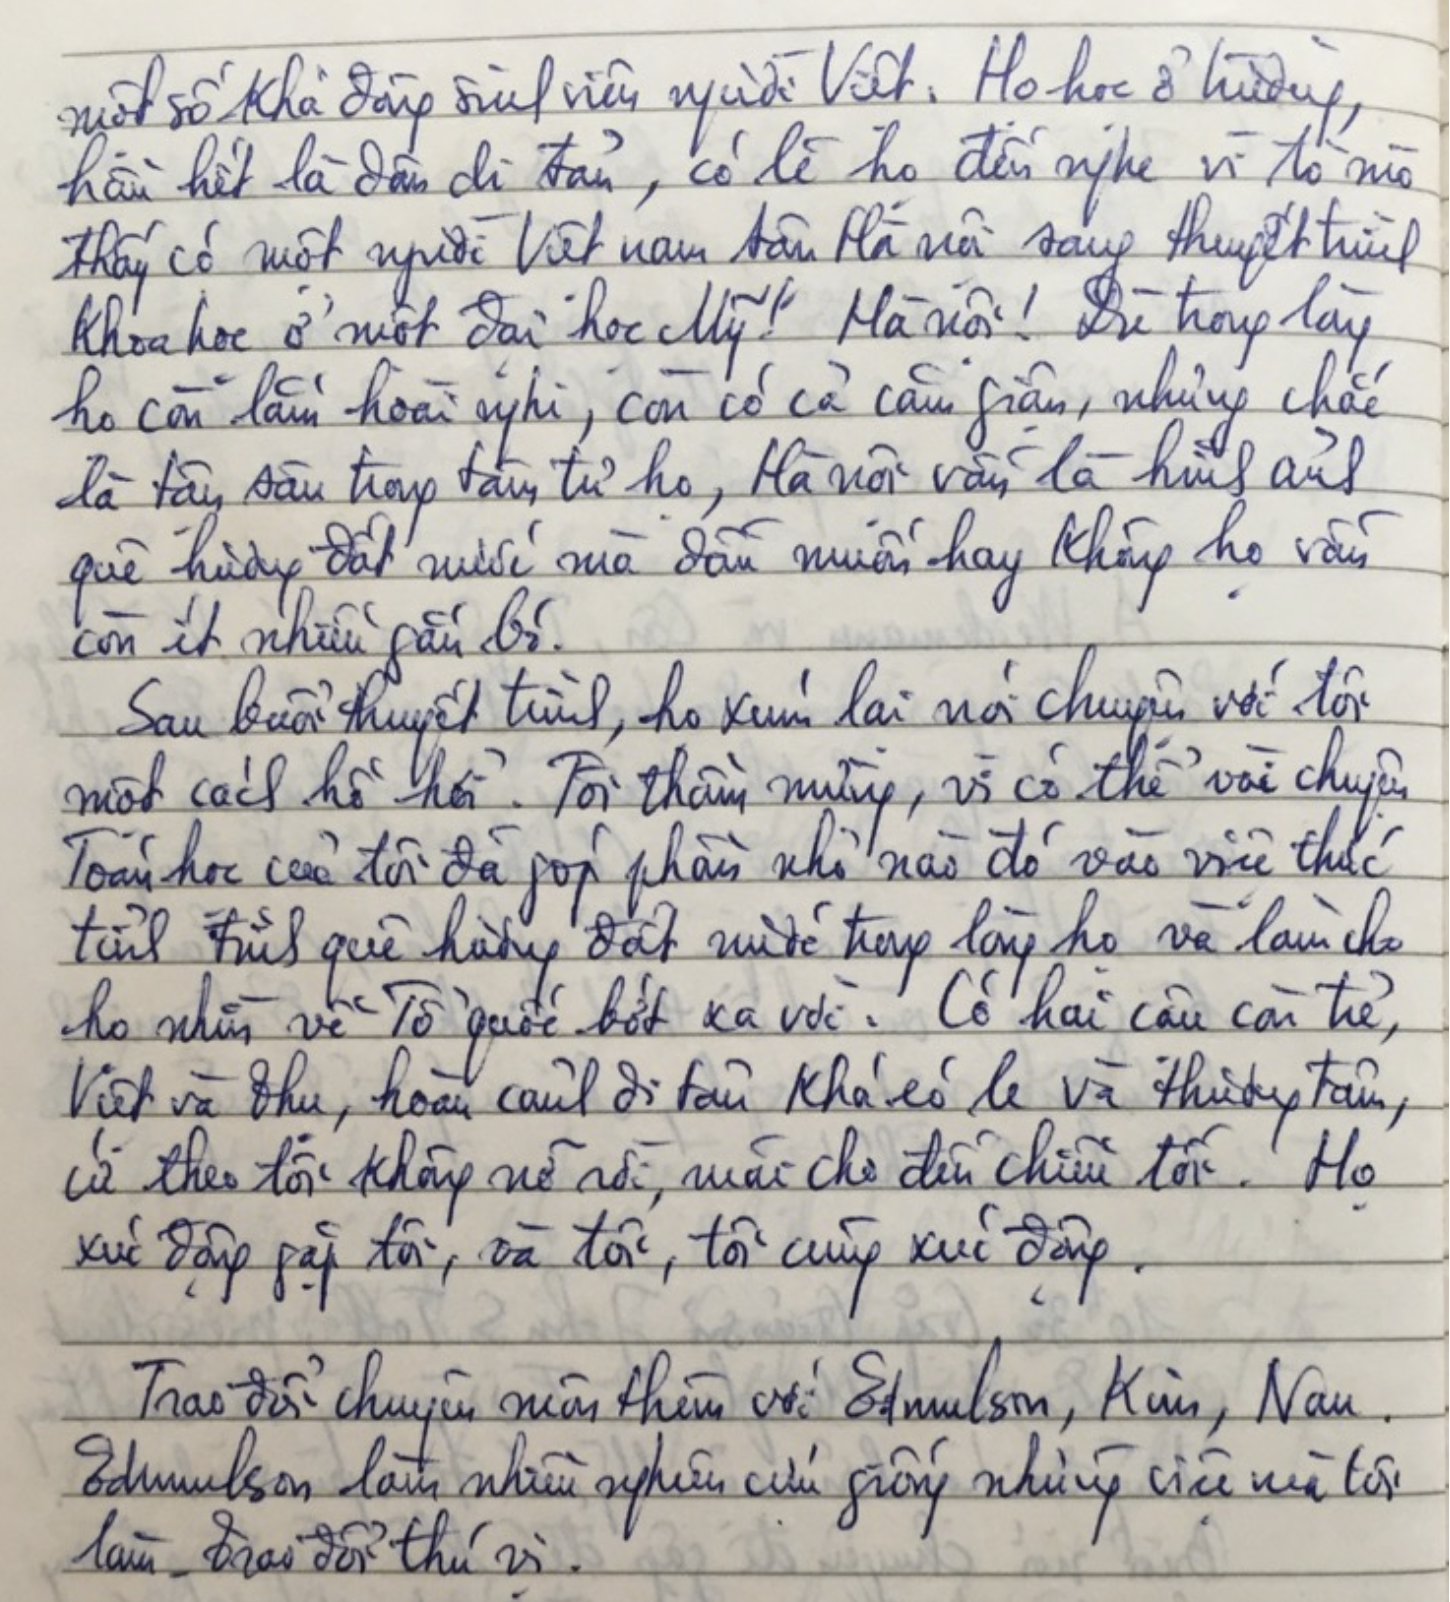 một số khá đông sinh viên người Việt. Họ học ở trường,
hầu hết là dân di tản, có lẽ họ đến nghe vì tò mò
thấy có một người Việt nam từ Hà nội sang thuyết trình
khoa học ở một đại học Mỹ! Hà nội! Dù trong lòng
họ còn lắm hoài nghi, còn có cả căm giận, nhưng chắc
là tận sâu trong tâm tư họ, Hà nội vẫn là hình ảnh
quê hương đất nước mà dẫu muốn hay không họ vẫn
còn ít nhiều gắn bó.
Sau buổi thuyết trình, họ xúm lại nói chuyện với tôi
một cách hồ hởi. Tôi thầm mừng, vì có thể vài chuyện
Toán học của tôi đã góp phần nhỏ nào đó vào việc thức
tỉnh tình quê hương đất nước trong lòng họ và làm cho
họ nhìn về Tổ quốc bớt xa vời. Có hai cậu còn trẻ,
Việt và Thu, hoàn cảnh di tản khá éo le và thương tâm,
cứ theo tôi không nỡ rời, mãi cho đến chiều tối. Họ
xúc động gặp tôi, và tôi, tôi cũng xúc động.
Trao đổi chuyên môn thêm với Edmulson, Kim, Nau.
Edmulson làm nhiều nghiên cứu giống những việc mà tôi
làm. Trao đổi thú vị.